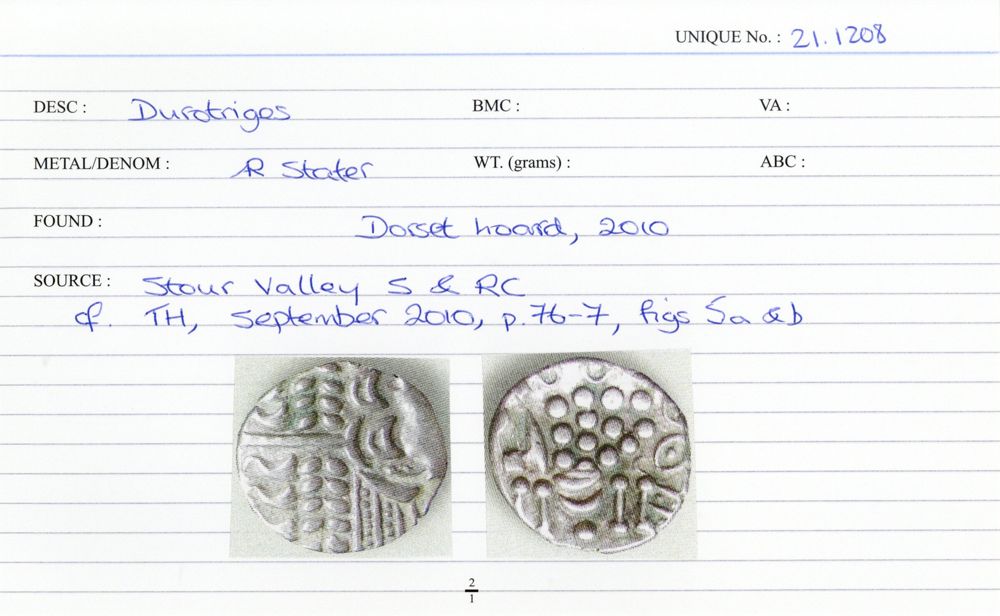 UNIQUE No. : 21.1208
DESC : Durotriges BMC : VA :
METAL/DENOM : AR Stater WT. (grams) : ABC :
FOUND : Dorset hoard, 2010
SOURCE : Stour Valley S & RC
cf. TH, September 2010, p.76-7, figs 5a & b
2
1